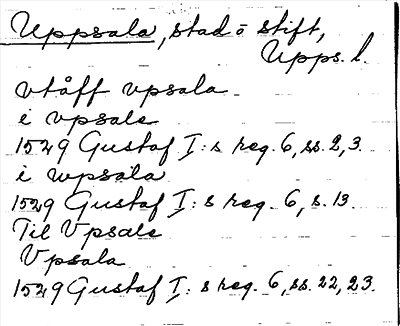 Uppsala, stad o stift,
Upps. l.
vtåff vpsala
i vpsale
1529 Gustaf I:s reg. 6, ss. 2, 3.
i wpsala
1529 Gustaf I:s reg. 6, s. 13.
Til Vpsale
Vpsala
1529 Gustaf I:s reg. 6, ss. 22, 23.